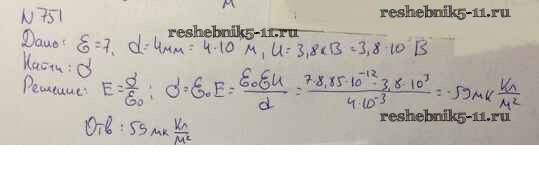 N 751
reshebnik5-11.ru
Дано: ε=7, d=4мм=4·10 м, U=3,8кВ=3,8·10 В
Найти: σ
Решение: E=σ/ε₀; σ=ε₀E=ε₀εU/d=7·8,85·10⁻¹²·3,8·10³/4·10⁻³=59мк Кл/м²
Отв: 59мк Кл/м²
reshebnik5-11.ru